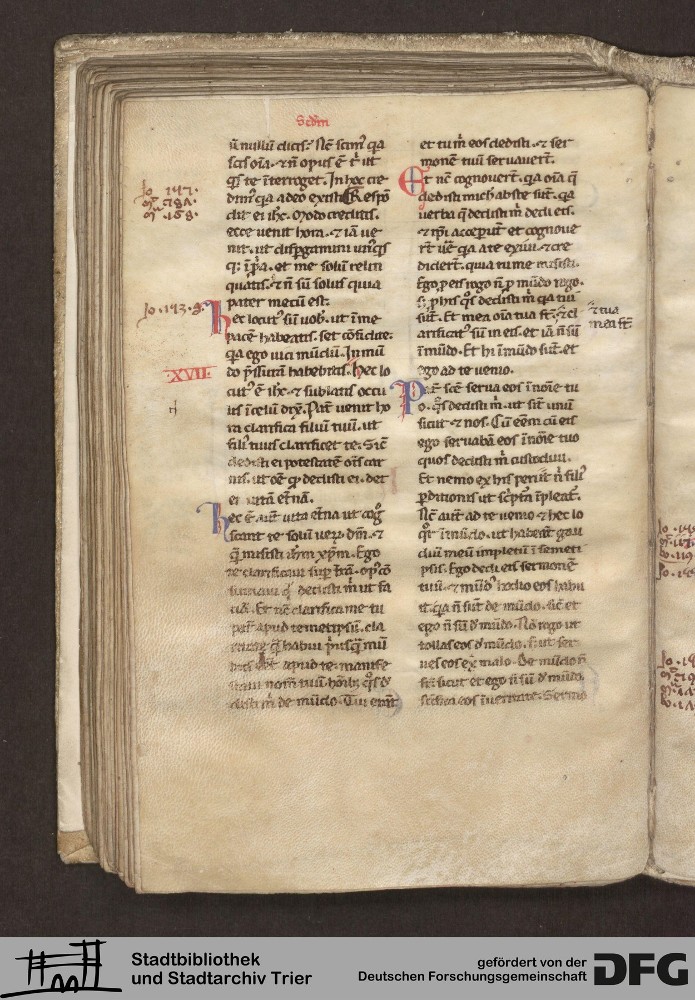 Scdm
Jo. 147.
Jo. 143.
XVII
ū nullū dicis: Nc̄ scim⁹ q̄a
scis oīa. ⁊ n̄ opus ē t̄ ut
q̄s te īterroget. In hoc cre
dim⁹ q̄a a deo existi. Respō
dit ei ihc. Modo creditis.
ecce venit hora. ⁊ iā ue
nit. ut dispgamini unq̄sq
q; ī p̄a. et me solū relin
quatis. ⁊ n̄ sū solus quia
pater mecū est.
Hec locut⁹ sū uob. ut ī me
pacē habeatis. set cōfidite.
q̄a ego uici mūdū. In mū
do p̄ssurā habebitis. Hec lo
cut⁹ ē ihc. ⁊ subleuatis occu
lis ī celū dix̄. Pat̄ venit ho
ra clarifica filiū tuū. ut
fili⁹ tuus clarificet te. Sic̄
dedisti ei potestatē oīs car
nis. ut oē q̄ dedisti ei. det
ei uitā et̄nā.
Hec ē aut̄ uita et̄na ut cog
scant te solū uerū dm̄. ⁊
q̄ misisti ihm̄ xp̄m. Ego
te clarificaui sup t̄rā. op⁹ cō
sumaui q̄ dedisti m̄ ut fa
ciā. Et nc̄ clarifica me tu
pat̄ apud temetipsū. cla
ritate q̄ habui p̄usq̄ mū
dus eēt apud te. manife
staui nom̄ tuū hōib; q̄s d
disti m̄ de mūdo. Tui erāt
et tu m̄ eos dedisti. ⁊ ser
monē tuū seruauert̄.
Et nc̄ cognouert̄. q̄a oīa q̄
dedisti mich abs te sūt. q̄a
uerba q̄ dedisti m̄ dedi eis.
⁊ ip̄i acceper̄ut et cognoue
rt̄ ue̅ q̄a a te exiui. ⁊ cre
diderт̄. quia tu me misisti.
Ego p eis rogo n̄ p mūdo rogo.
s; p his q̄s dedisti m̄ q̄a tui
sūt. Et mea oīa tua st̄. ⁊ cl
arificat⁹ sū in eis. et iā n̄ sū
ī mūdo. Et hi ī mūdo sūt. et
ego ad te uenio.
⁊ tua
mea st̄
Pat̄ scē serua eos ī noīe tu
o. q̄s dedisti m̄. ut sīt unū
sicut ⁊ nos. Cū eēm cū eis
ego seruabā eos ī noīe tuo
quos dedisti m̄ custodiui.
Et nemo ex his periit n̄ fili⁹
p̄ditionis ut sc̄ptm̄ īpleat̄.
Nc̄ aut̄ ad te uenio ⁊ hec lo
q̄r ī mūdo. ut habeāt gau
diū meū impletū ī semeti
psis. Ego dedi eis sermonē
tuū. ⁊ mūd⁹ hodio eos habu
it. q̄a n̄ sūt de mūdo. sic̄ et
ego n̄ sū d̄ mūdo. Nō rogo ut
tollas eos d̄ mūdo. s; ut ser
ues eos ex malo. De mūdo n̄
st̄. sicut et ego n̄ sū d̄ mūdo.
sc̄ifica eos ī ueritate. Sermo
Stadtbibliothek
und Stadtarchiv Trier
gefördert von der
Deutschen Forschungsgemeinschaft
DFG